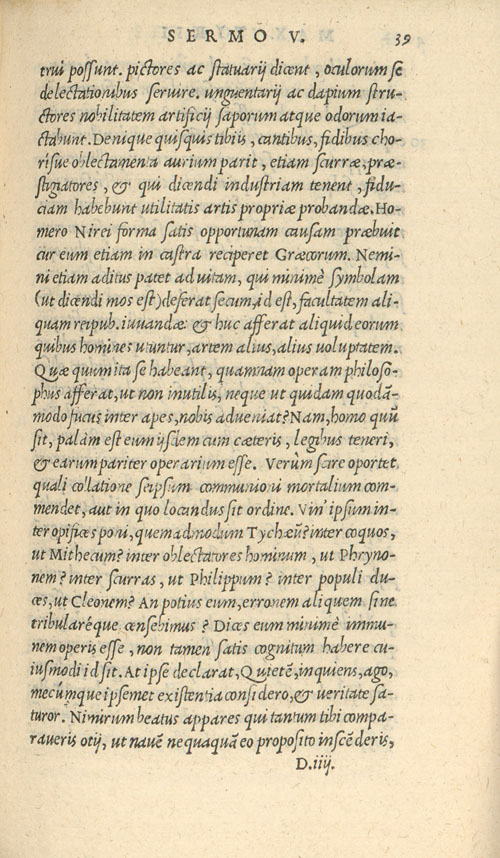 SERMO V. 39
trui possunt. pictores ac statuarij dicent, oculorum se
delectationibus seruire. unguentarij ac dapium stru-
ctores nobilitatem artificij saporum atque odorum ia-
ctabunt. Denique quisquis tibiis, cantibus, fidibus cho-
risue oblectamenta aurium parit, etiam scurræ, præ-
stigiatores, & qui dicendi industriam tenent, fidu-
ciam habebunt utilitatis artis propriæ probandæ. Ho-
mero Nirei forma satis opportunam causam præbuit
cur eum etiam in castra reciperet Græcorum. Nemi-
ni etiam aditus patet ad uitam, qui minimè symbolam
(ut dicendi mos est) deferat secum, id est, facultatem ali-
quam reipub. iuuandæ: & huc afferat aliquid eorum
quibus homines utuntur, artem alius, alius uoluptatem.
Quæ quum ita se habeant, quamnam operam philoso-
phus afferat, ut non inutilis, neque ut quidam quodã-
modo fucus inter apes, nobis adueniat? Nam, homo quũ
sit, palàm est eum ijsdem cum cæteris, legibus teneri,
& earum pariter operarium esse. Verùm scire oportet
quali collatione seipsum communioni mortalium com-
mendet, aut in quo locandus sit ordine. Vin' ipsum in-
ter opifices poni, quemadmodum Tychæũ? inter coquos,
ut Mithecum? inter oblectatores hominum, ut Phryno-
nem? inter scurras, ut Philippum? inter populi du-
ces, ut Cleonem? An potius eum, erronem aliquem sine
tribu laréque censebimus? Dices eum minimè immu-
nem operis esse, non tamen satis cognitum habere cu-
iusmodi id sit. At ipse declarat, Quietẽ, inquiens, ago,
mecúmque ipse met existentia considero, & ueritate sa-
turor. Nimirum beatus appares qui tantum tibi compa-
raueris otij, ut nauẽ nequaquã eo proposito inscẽderis,
D.iiij.